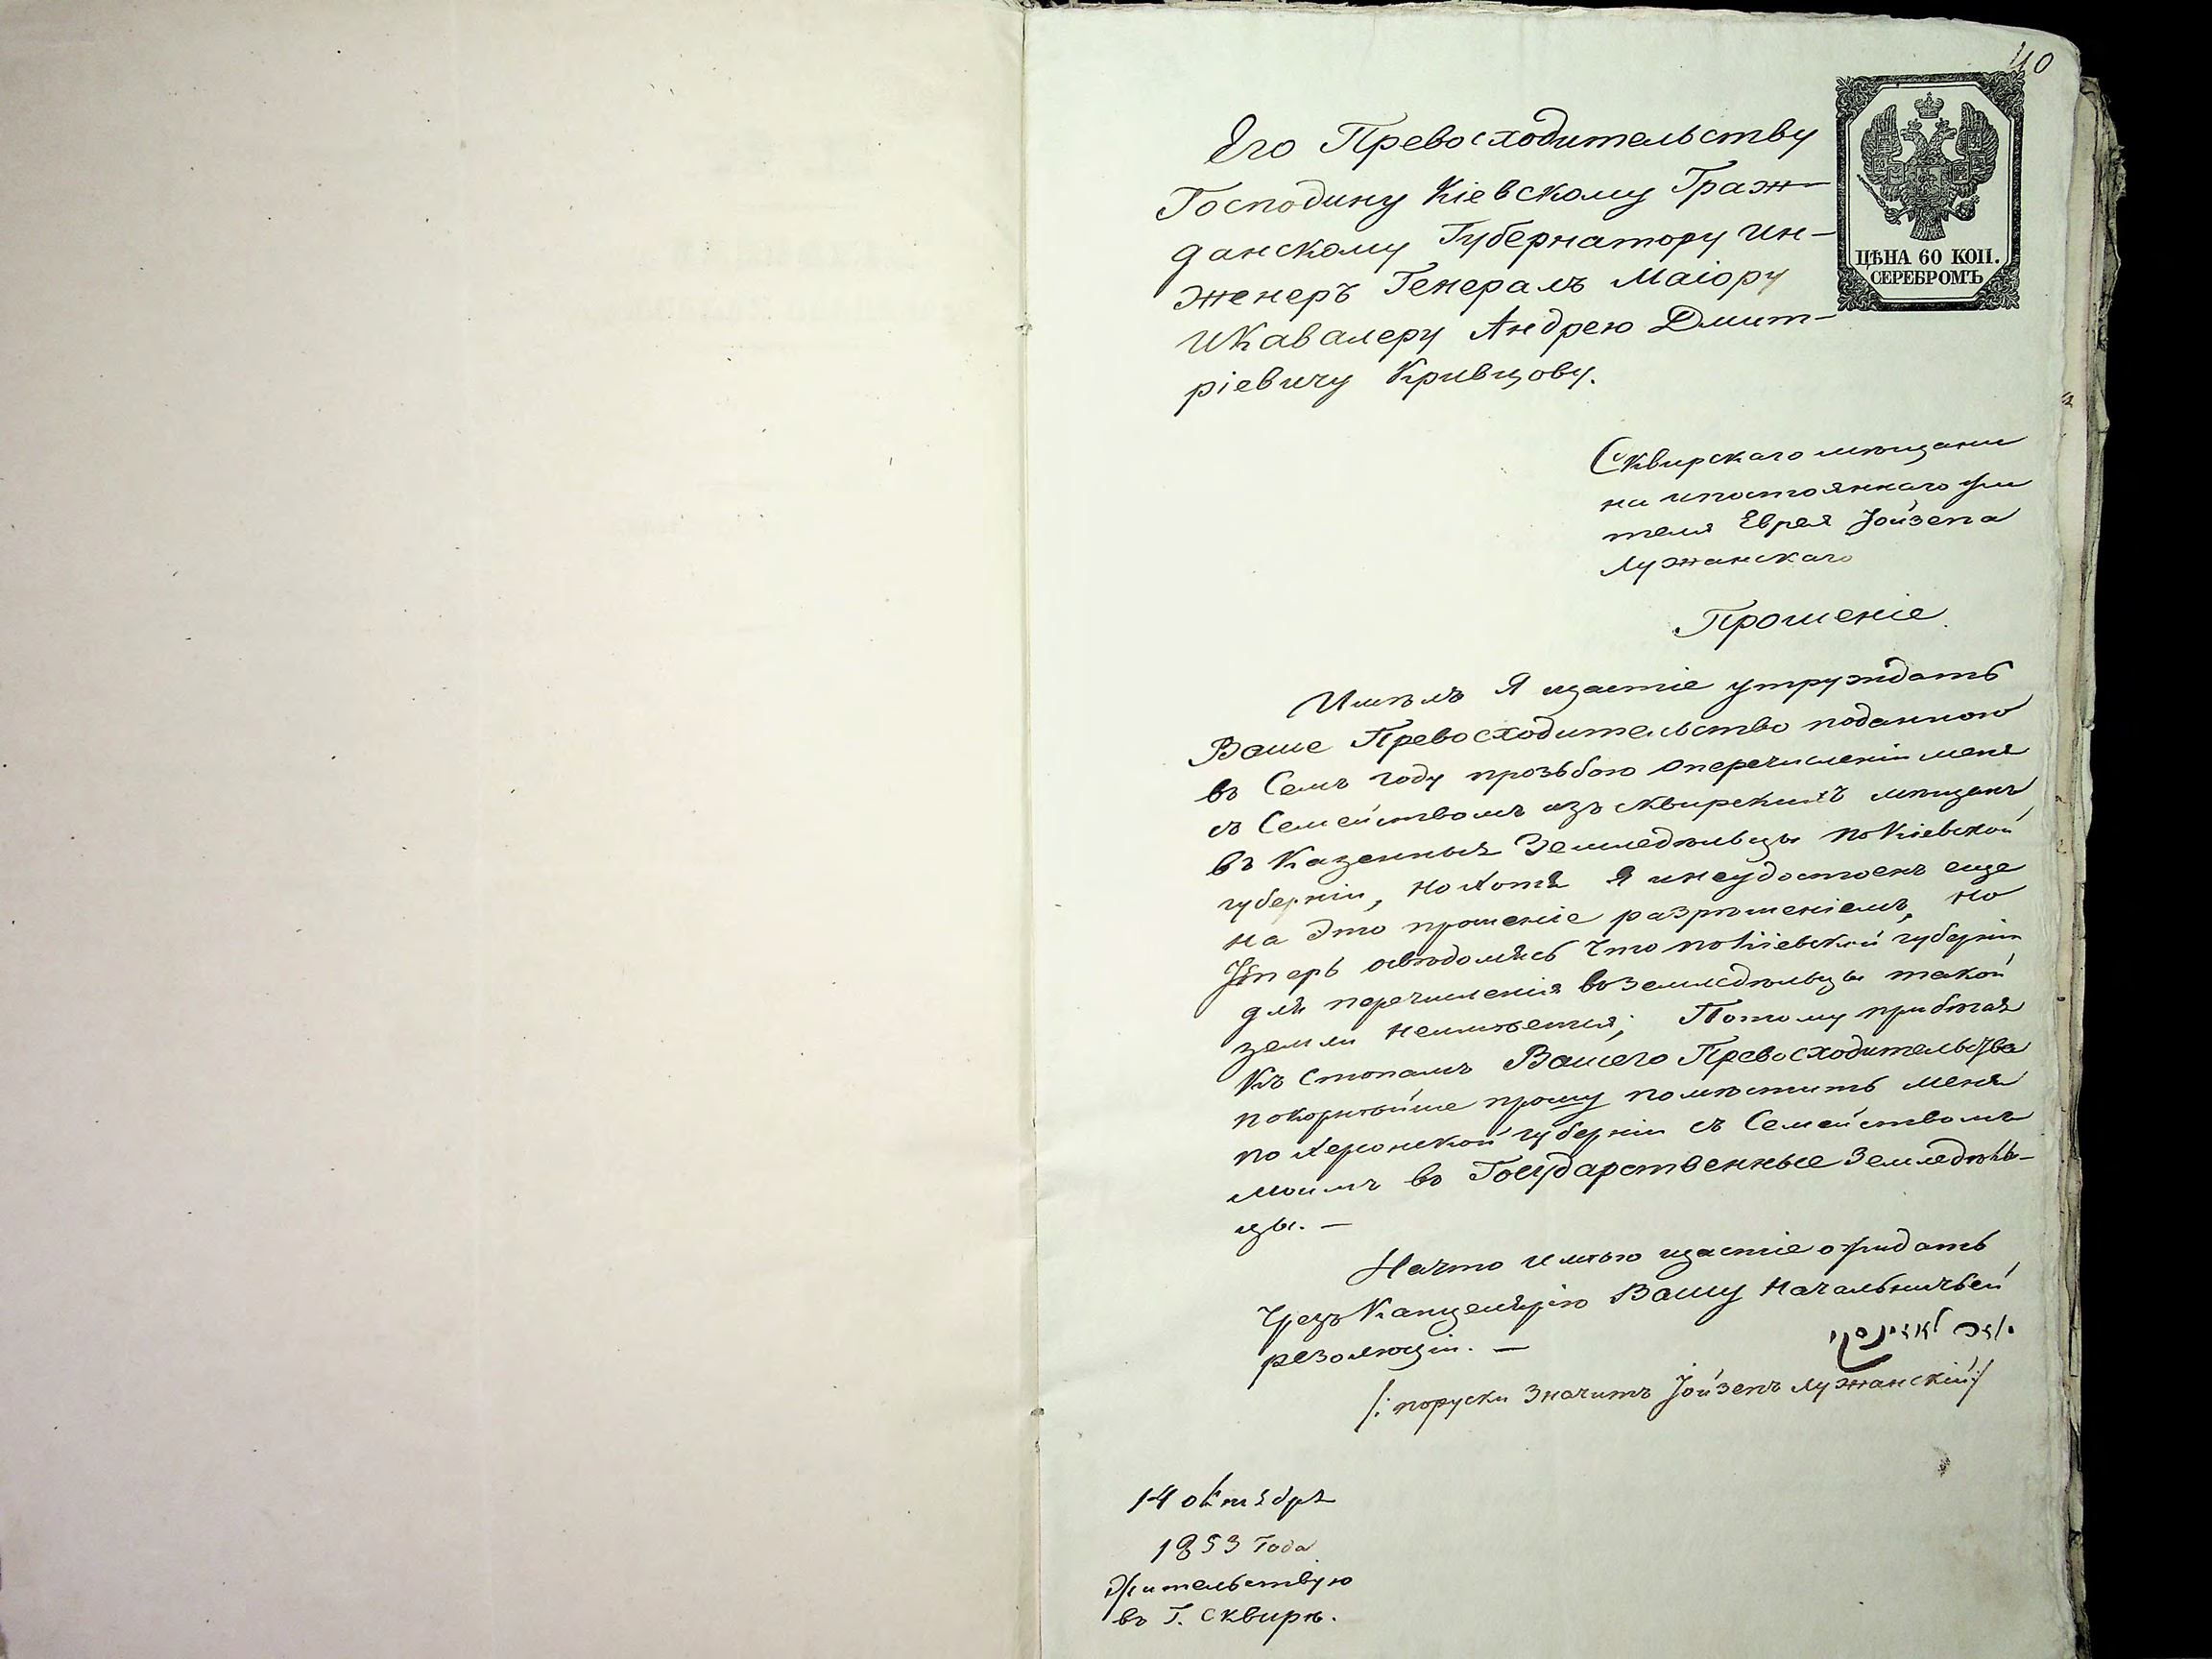 40
Его Превосходительству
Господину Кіевскому Граж-
данскому Губернатору Ин-
женеръ Генералъ Маіору
и Кавалеру Андрею Дмит-
ріевичу Кривцову.
ЦѢНА 60 КОП.
СЕРЕБРОМЪ
Сквирскаго мѣщани
на и постояннаго жи
теля Еврея Іойзепа
Лужанскаго
Прошеніе.
Имѣлъ я щастіе утруждать
Ваше Превосходительство поданною
въ Семъ году прозьбою о перечисленіи меня
съ Семействомъ изъ сквирскихъ мѣщанъ
въ Казенныя Земледѣльцы по Кіевской
губерніи, но хотя я и неудостоенъ еще
на это прошеніе разрѣшеніемъ, но
теперь освѣдомясь что по Кіевской губерніи
для перечисленія въ земледѣльцы такой
земли неимѣется; Потому прибѣгая
Къ стопамъ Вашего Превосходительства
покорнѣйше прошу помѣстить меня
по Херсонской губерніи съ Семействомъ
моимъ въ Государственные Земледѣль-
цы. —
На что имѣю щастіе ожидать
чрезъ Канцелярію Вашу Начальничьей
резолюціи. —
/: поруски значитъ Іойзепъ Лужанскій :/
14 октября
1853 Года
Жительствую
въ Г. Сквирѣ.